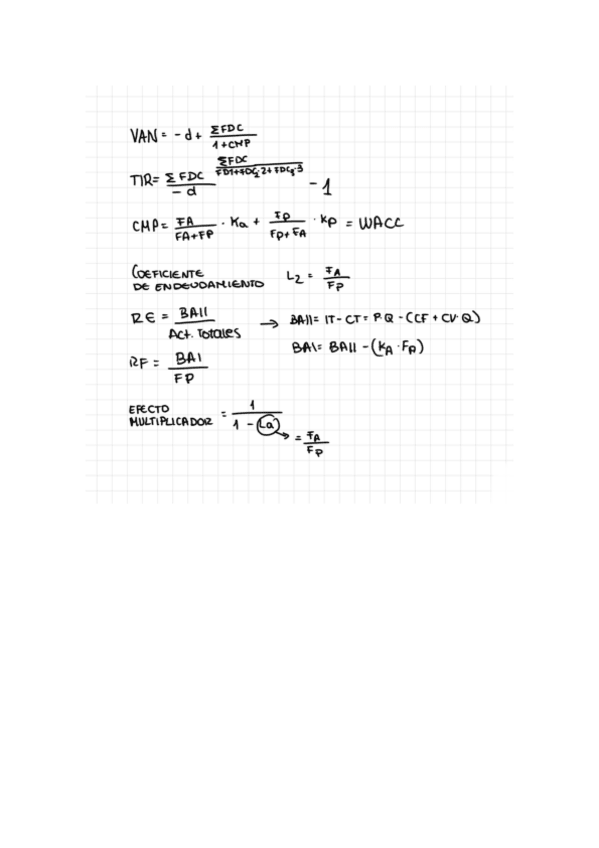 VAN = - d + ΣFDC / 1+CMP
TIR = (ΣFDC / -d) ^ (ΣFDC / FD1+FDC₂·2+FDC₃·3) - 1
CMP = FA / FA+FP · Ka + FP / FP+FA · KP = WACC
COEFICIENTE
DE ENDEUDAMIENTO L2 = FA / FP
RE = BAII / Act. Totales → BAII = IT - CT = P·Q - (CF + CV·Q)
BAI = BAII - (KA · FA)
RF = BAI / FP
EFECTO
MULTIPLICADOR = 1 / 1 - (La) → = FA / FP